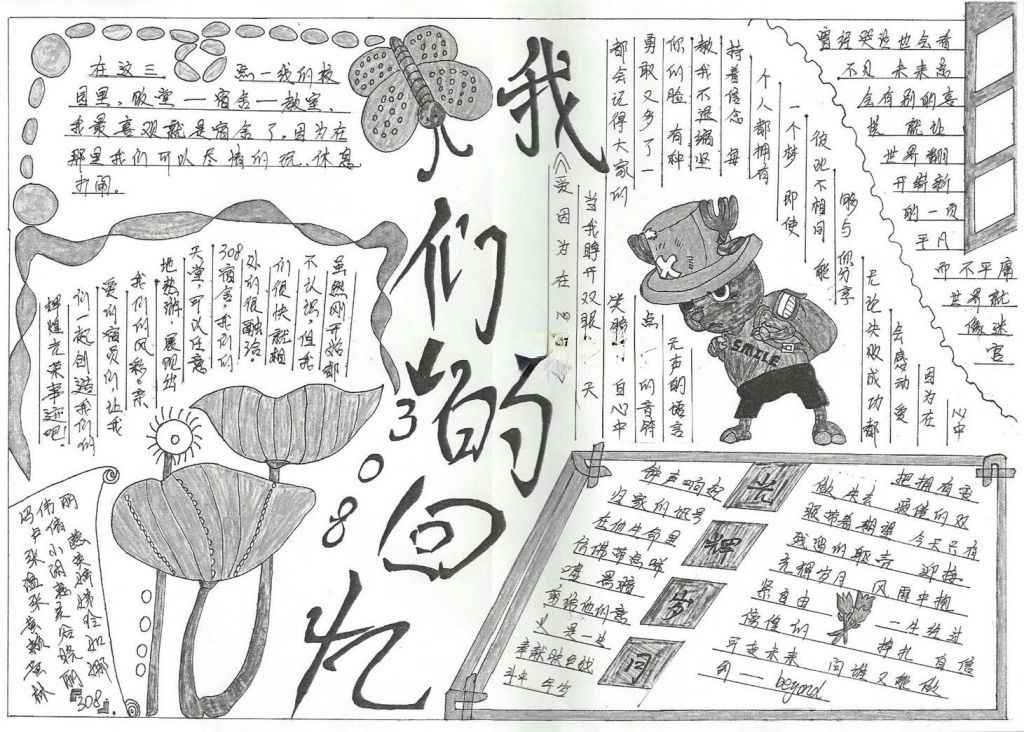 在这三点一我们校
园里，饭堂一宿舍一教室，
我最喜欢就是宿舍了，因为在
那里我们可以尽情们玩、休息
打闹。
我们的回忆
308
虽然刚开始都
不认识，但我
们很快就相
处们很融洽。
308宿舍，我们们
天堂，可以任意
地热游，展现出
我们们风彩，亲
爱们宿员们，让我
们一起创造我们们
辉煌光荣事迹吧！
308
《爱因为在心中》
当我睁开双眼
天
笑脸
自心中
一点
的音符
无声的语言
都会记得大家们
勇敢又多了一
你们脸 有种
教我不退缩坚
持着信念 每
个人都拥有
一个梦 即使
彼此不相同 能
够与你分享
无论失败成功都
会感动 爱
因为在
心中
曾经哭泣也会看
不见 未来总
会有别的喜
悦 就让
世界翻
开崭新
的一页
平凡
而不平庸
世界就
像迷
宫
光辉岁月
钟声响起
归家的讯号
在他生命里
仿佛带点唏
嘘 黑暗
肤色给他们意
义是一生
奉献 肤色战
斗中 年岁
把拥有变
做失去 疲倦的双
眼带着期望 今天只有
残留的躯壳 迎接
光辉岁月 风雨中抱
紧自由 一生经过
彷徨们 挣扎 自信
可改未来 问谁又能做
到 — beyond
SMILE